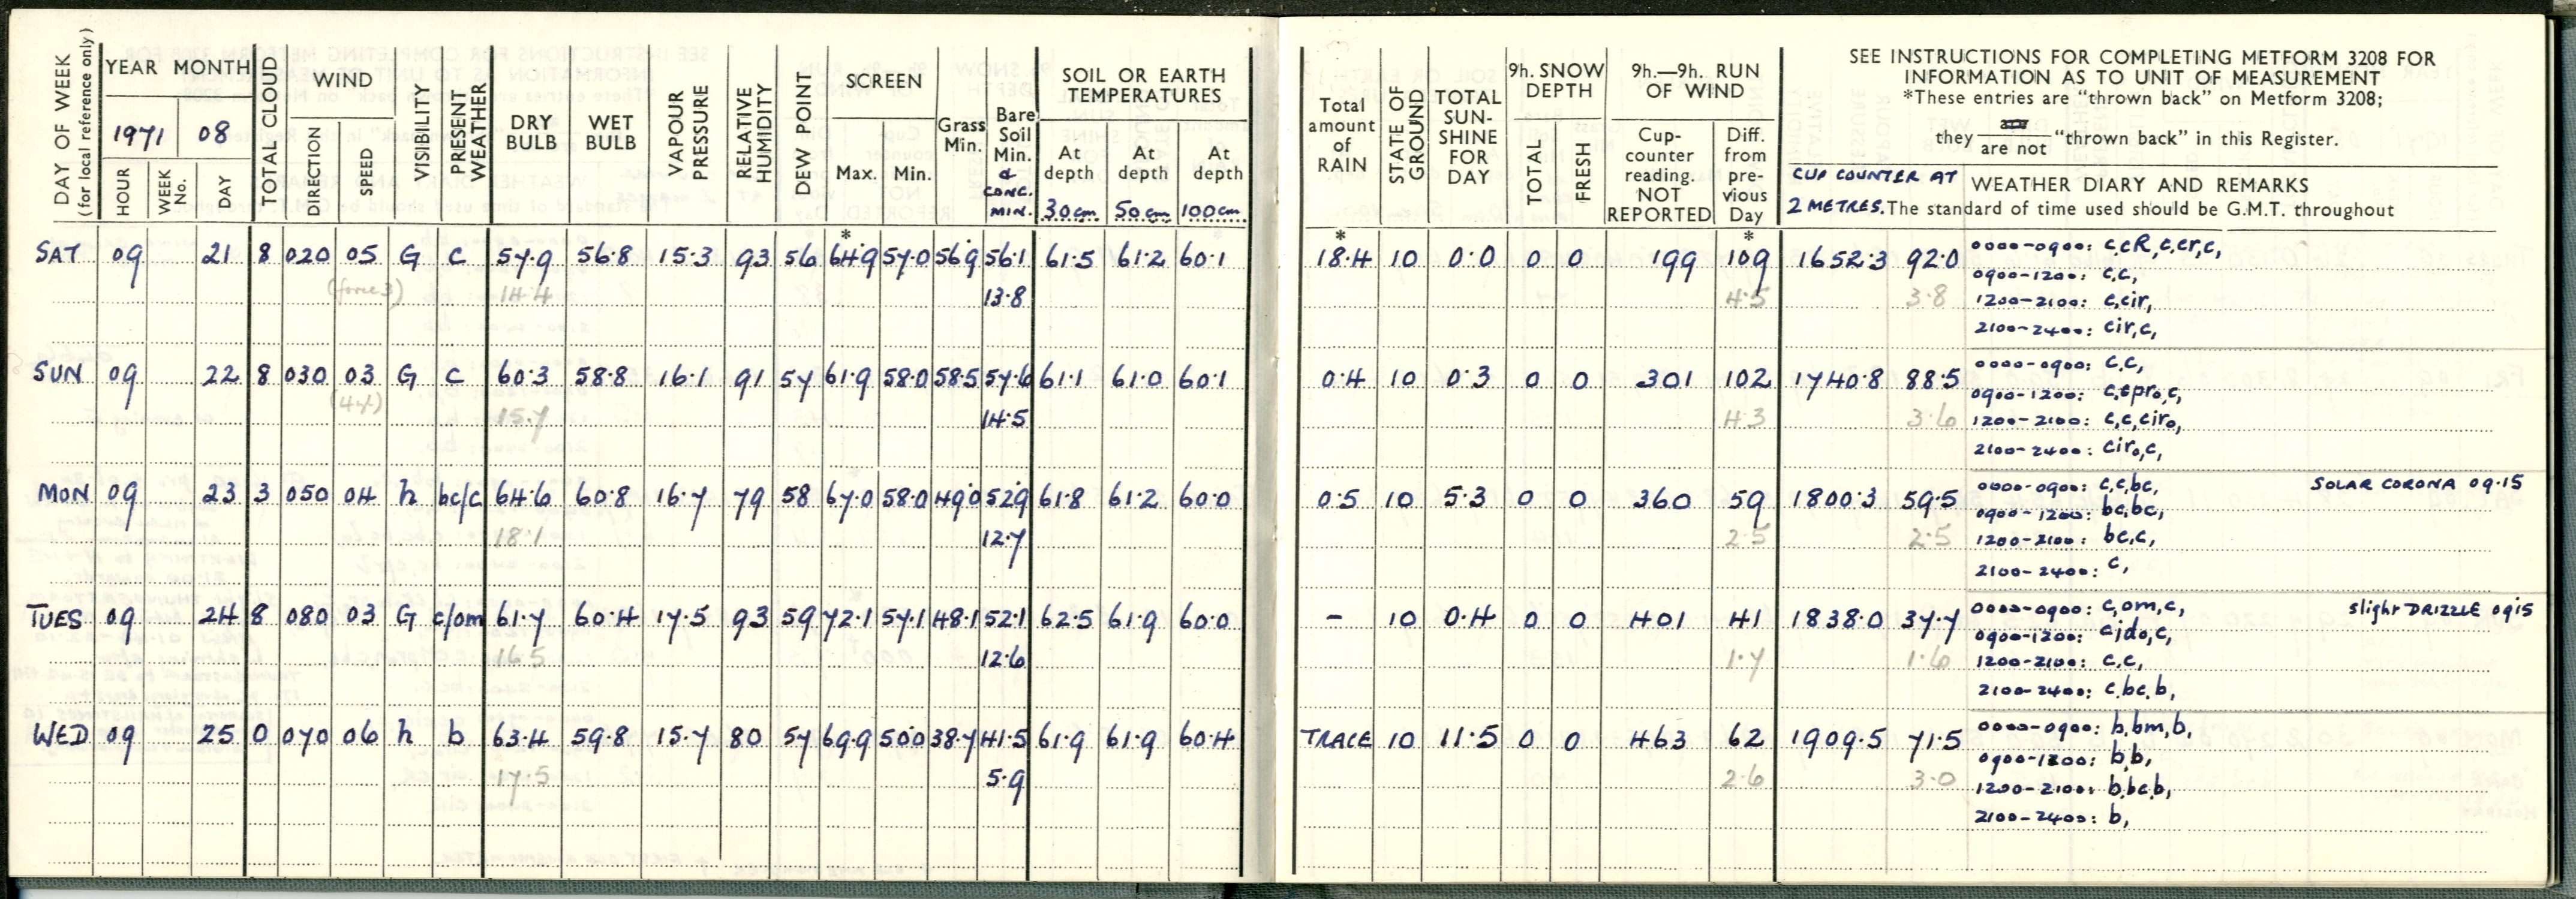 DAY OF WEEK
(for local reference only)
YEAR MONTH
1971 08
HOUR
WEEK No.
DAY
TOTAL CLOUD
WIND
DIRECTION
SPEED
VISIBILITY
PRESENT WEATHER
DRY BULB
WET BULB
VAPOUR PRESSURE
RELATIVE HUMIDITY
DEW POINT
SCREEN
Max. Min.
Grass Min.
Bare Soil Min.
& CONC. MIN.
SOIL OR EARTH TEMPERATURES
At depth 30cm
At depth 50cm
At depth 100cm
Total amount of RAIN
STATE OF GROUND
TOTAL SUN-SHINE FOR DAY
9h. SNOW DEPTH
TOTAL
FRESH
9h.—9h. RUN OF WIND
Cup-counter reading. NOT REPORTED
Diff. from pre-vious Day
SEE INSTRUCTIONS FOR COMPLETING METFORM 3208 FOR
INFORMATION AS TO UNIT OF MEASUREMENT
*These entries are "thrown back" on Metform 3208;
they are / are not "thrown back" in this Register.
CUP COUNTER AT
2 METRES.
WEATHER DIARY AND REMARKS
The standard of time used should be G.M.T. throughout
* * *
SAT 09 21 8 020 05 G c 57.9 56.8 15.3 93 56 64.9 57.0 56.9 56.1 61.5 61.2 60.1 18.4 10 0.0 0 0 199 109 1652.3 92.0 0000-0900: c,cR,c,cr,c,
0900-1200: c,c,
(force 3) 14.4 13.8 4.5 3.8 1200-2100: c,cir,
2100-2400: cir,c,
SUN 09 22 8 030 03 G c 60.3 58.8 16.1 91 57 61.9 58.0 58.5 57.6 61.1 61.0 60.1 0.4 10 0.3 0 0 301 102 1740.8 88.5 0000-0900: c,c,
0900-1200:
15.7 14.5 4.3 3.6 1200-2100: c,c,ciro,
2100-2400: ciro,c,
MON 09 23 3 050 04 h bc/c 64.6 60.8 16.7 79 58 67.0 58.0 49.0 52.9 61.8 61.2 60.0 0.5 10 5.3 0 0 360 59 1800.3 59.5 0000-0900: c,c,bc, SOLAR CORONA 09.15
0900-1200: bc,bc,
18.1 12.7 2.5 2.5 1200-2100: bc,c,
2100-2400: c,
TUES 09 24 8 080 03 G c/om 61.7 60.4 17.5 93 59 72.1 57.1 48.1 52.1 62.5 61.9 60.0 - 10 0.4 0 0 401 41 1838.0 37.7 0000-0900: c,om,c, slight DRIZZLE 0915
0900-1200: cido,c,
16.5 12.6 1.7 1.6 1200-2100: c,c,
2100-2400: c,bc,b,
WED 09 25 0 070 06 h b 63.4 59.8 15.7 80 57 69.9 50.0 38.7 41.5 61.9 61.9 60.4 TRACE 10 11.5 0 0 463 62 1909.5 71.5 0000-0900: b,bm,b,
0900-1200: b,b,
17.5 5.9 2.6 3.0 1200-2100: b,bc,b,
2100-2400: b,